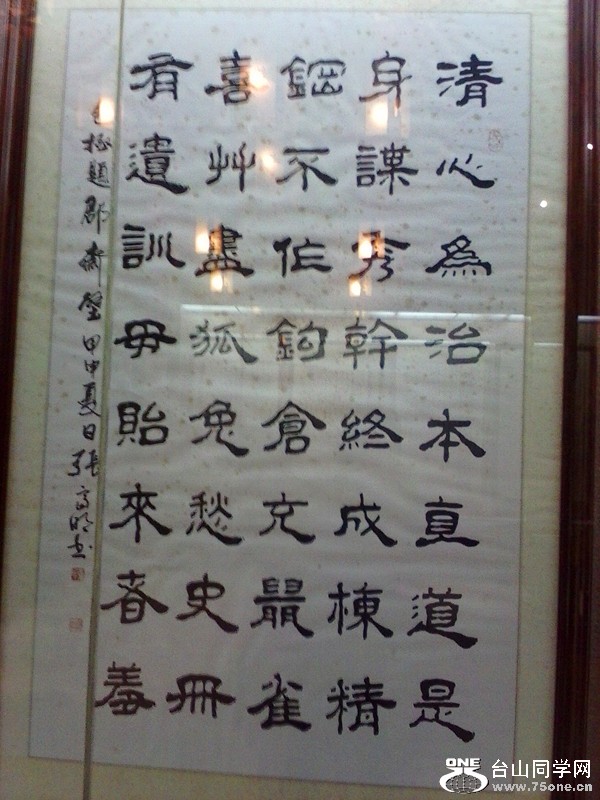 清心為治本直道是
身謀秀幹終成棟精
鋼不作鉤倉充鼠雀
喜艸盡狐兔愁史冊
有遺訓毋貽來者羞
包拯題郡齋壁甲申夏日張高明书
ONE
台山同学网
www.75one.cn